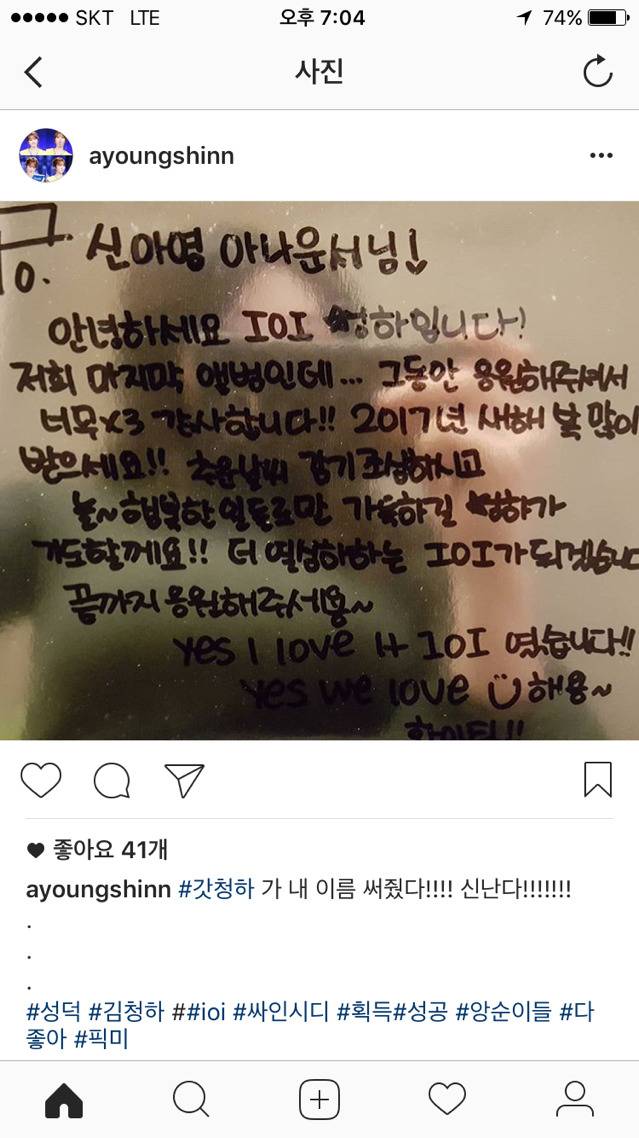 SKT LTE 오후 7:04 74%
사진
ayoungshinn
To. 신아영 아나운서님!
안녕하세요 IOI 청하입니다!
저희 마지막 앨범인데... 그동안 응원해주셔서
너무x3 감사합니다!! 2017년 새해 복 많이
받으세요!! 추운날씨 감기조심하시고
늘~행복한일들로만 가득하길 청하가
기도할께요!! 더 열심히하는 IOI가 되겠습니다
끝까지 응원해주세용~
yes I love it IOI 였습니다!!
yes we love 해용~
화이팅!!
좋아요 41개
ayoungshinn #갓청하 가 내 이름 써줬다!!!! 신난다!!!!!!!
.
.
.
#성덕 #김청하 ##ioi #싸인시디 #획득#성공 #앙순이들 #다
좋아 #픽미